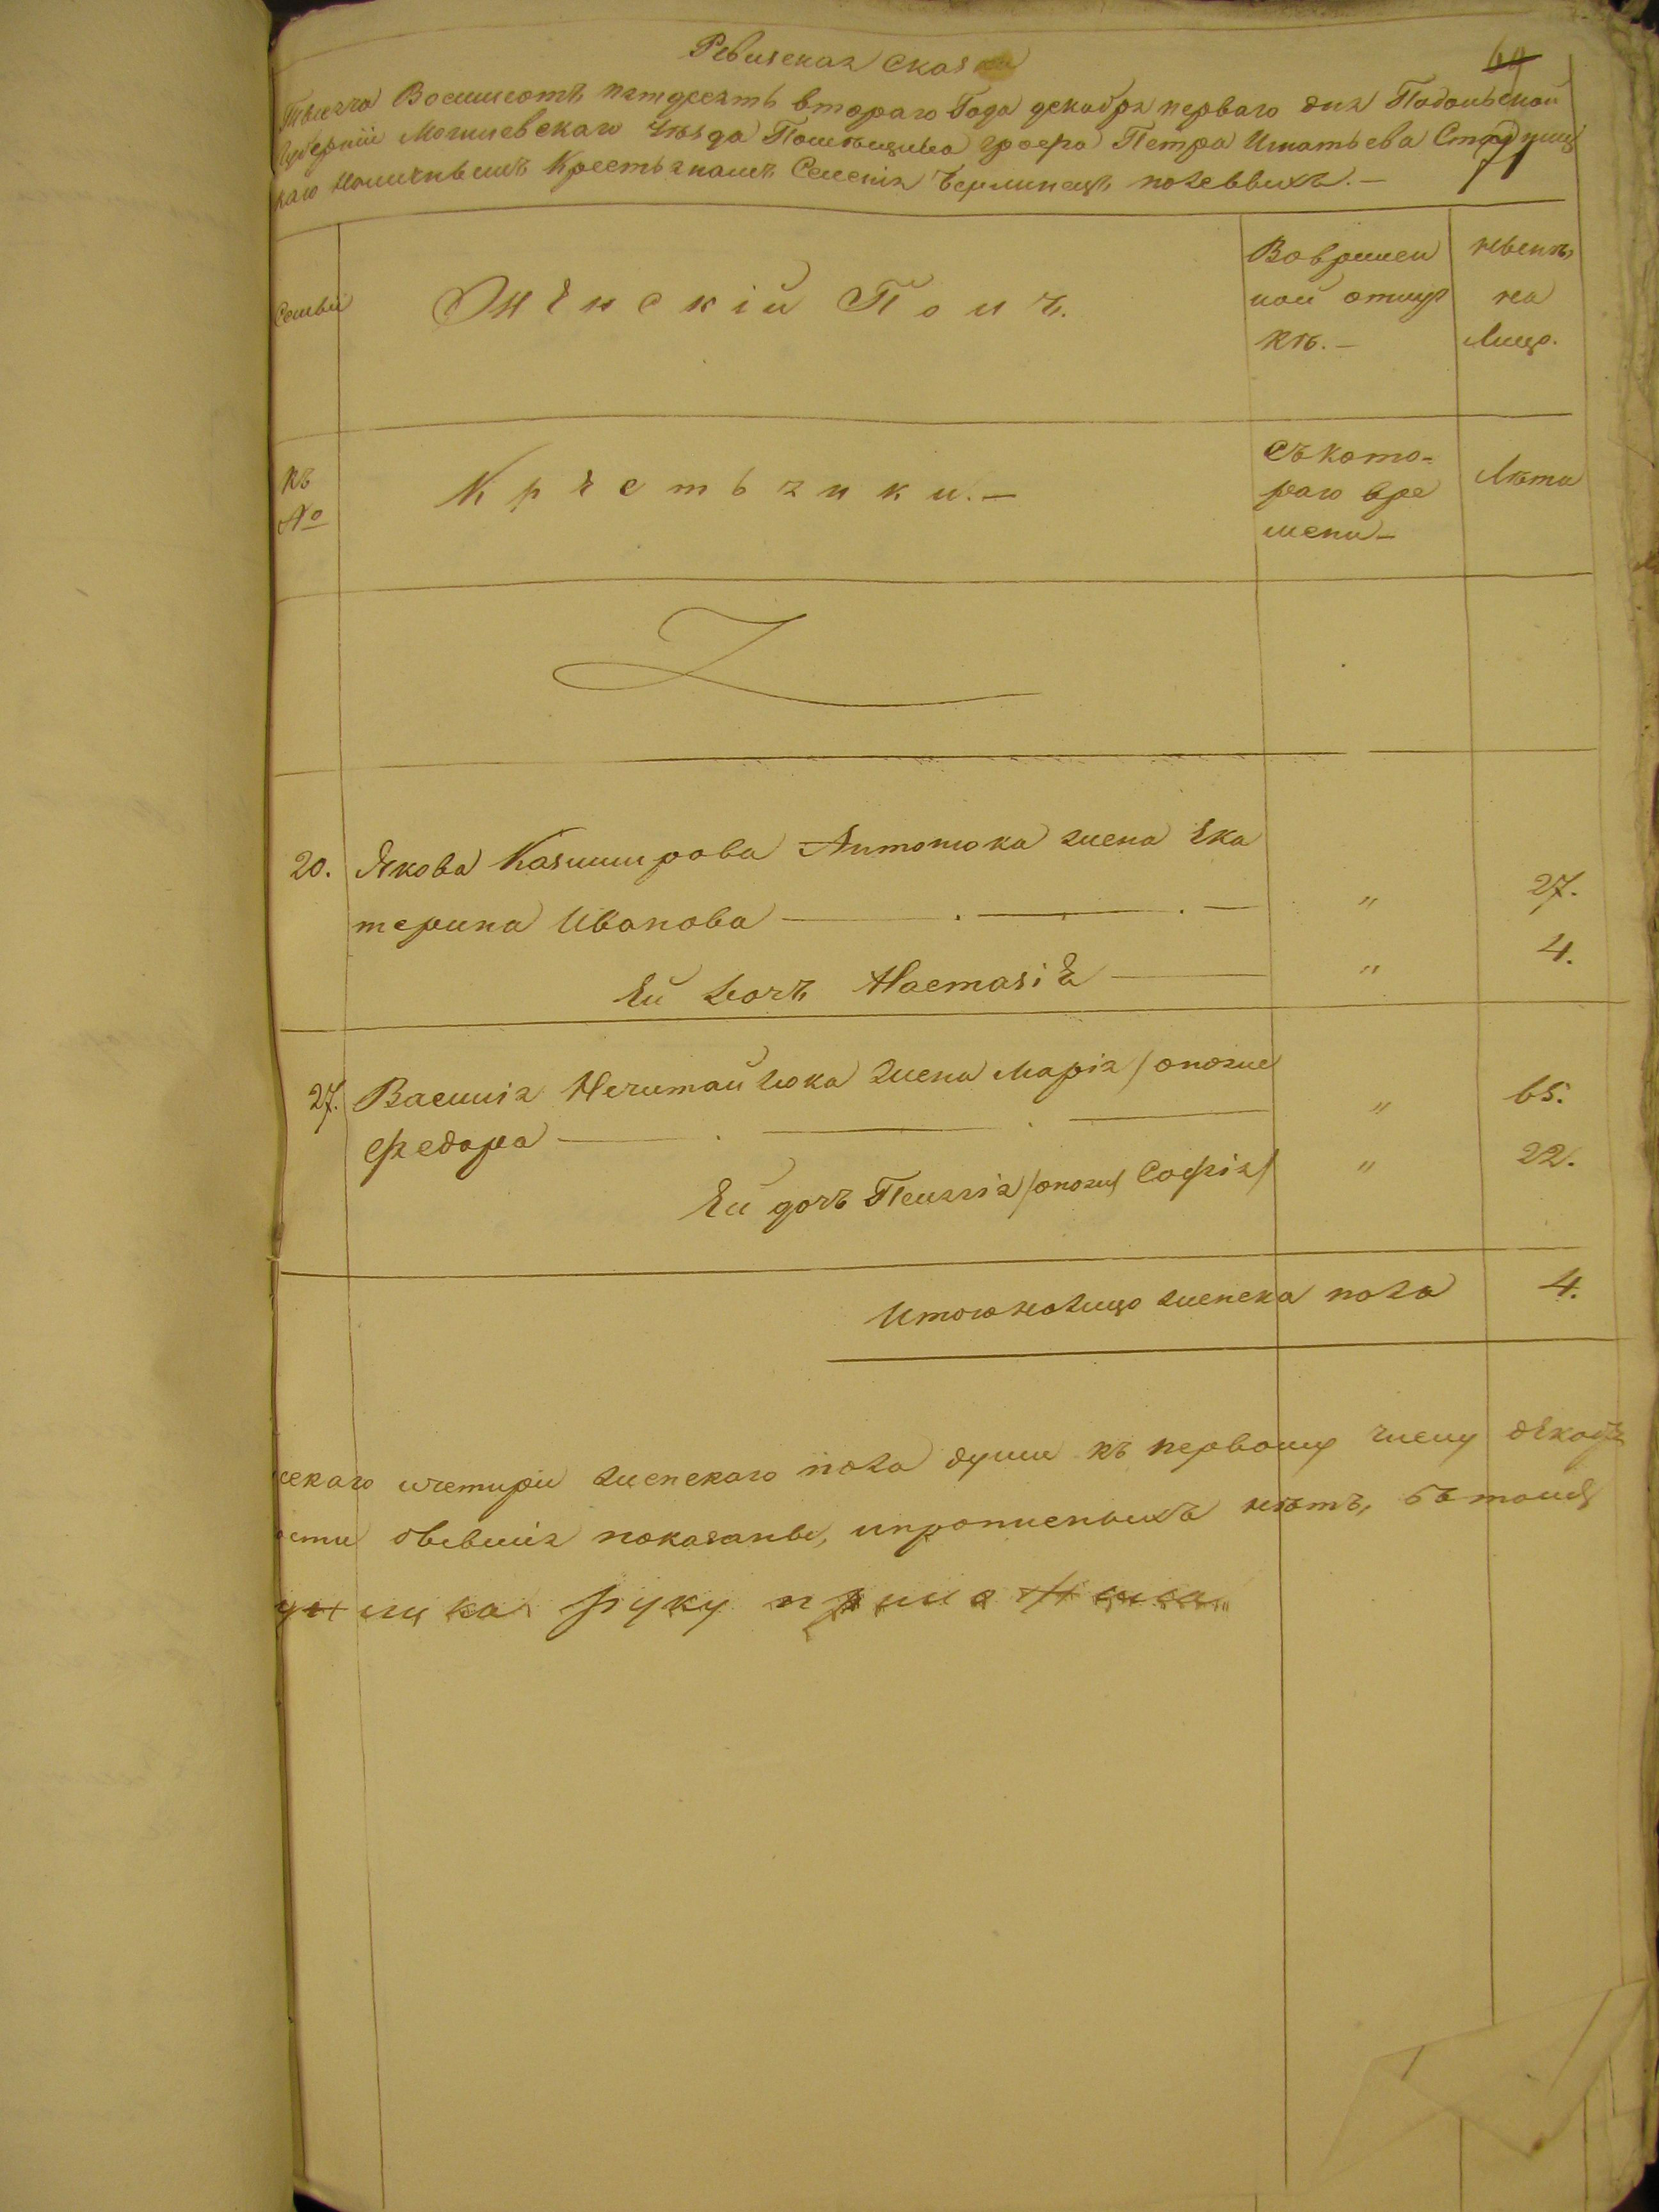 Ревизская сказка
69
Тысяча Восемсотъ пятдесятъ втораго Года декабря перваго дня Подольской
Губерніи Могилевскаго Уѣзда Помѣщика графа Петра Игнатьева
71
Крестьянамъ Селенія Берлинецъ полевыхъ. —
Семьи
Женскій Полъ.
Во времен
ной отлуч
кѣ. —
нынѣ
на
Лицо.
къ
№
Крестьянки. —
съ кото-
раго вре
мени —
Лѣта
20. Якова Казимирова Антонюка жена Ека
терина Иванова — " 27.
Ей дочъ Настазія — " 4.
27. Василія Нечитайлюка жена Марія /опозже
Федора — " 65.
Ей дочъ Пелагія /опозж Софія/ " 22.
Итого налицо женска пола 4.
скаго ичетыри женскаго пола души къ первому числу декаб
показаны, ипрописныхъ нѣтъ, бътомъ
руку приложилъ